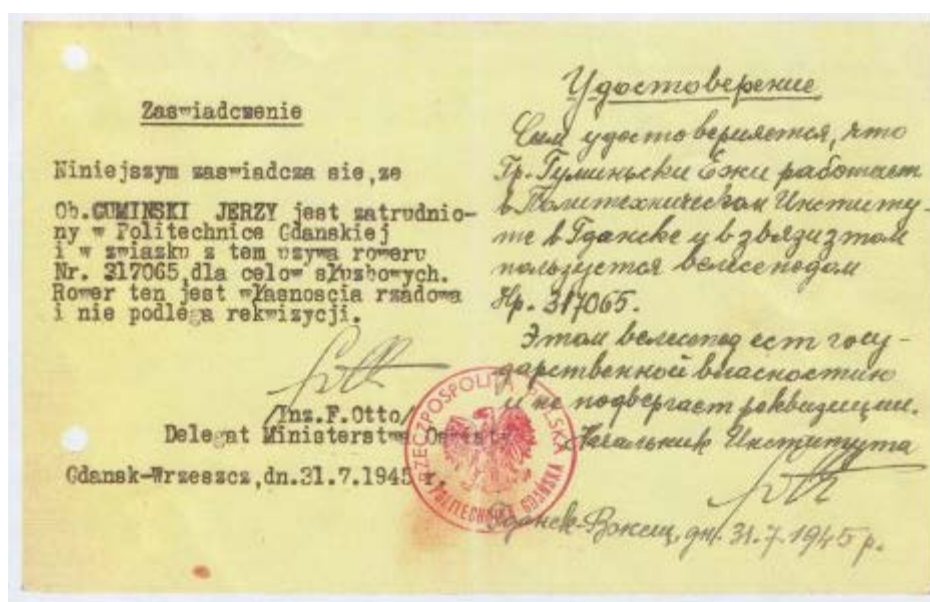 Zaswiadczenie
Niniejszym zaswiadcza sie,ze
Ob.GUMINSKI JERZY jest zatrudnio-
ny w Politechnice Gdanskiej
i w zwiazku z tem uzywa roweru
Nr. 317065,dla celow służbowych.
Rower ten jest własnoscia rzadowa
i nie podlega rekwizycji.
/Inz.F.Otto/
Delegat Ministerstwa Oswiaty
Gdansk-Wrzeszcz,dn.31.7.1945 r.
RZECZPOSPOLITA POLSKA
POLITECHNIKA GDAŃSKA
Удостоверение
Сим удостоверяется, что
Гр. Гуминьски Ежи работает
в Политехническом Институ-
те в Гданске и в звязи з том
пользуется велосепедом
Нр. 317065.
Этот велосипед ест госу-
дарственной власностию
и не подвергает реквизиции.
Начальник Института
дн. 31.7.1945 р.